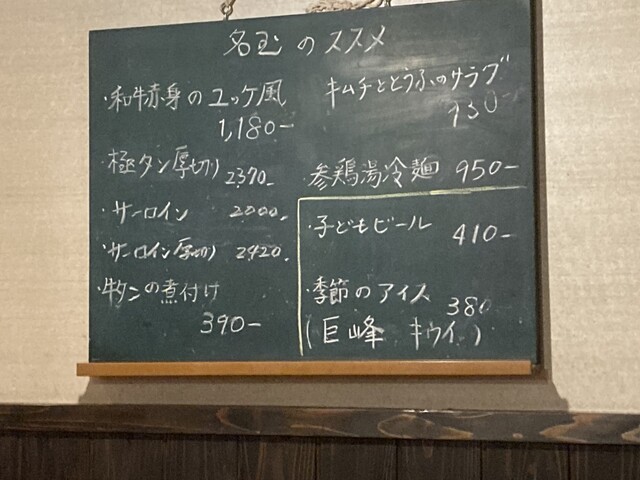 名玄のススメ
・和牛赤身のユッケ風
1,180-
・極タン厚切り 2370-
・サーロイン 2200-
・サーロイン厚切り 2420.
・牛タンの煮付け
390-
キムチととうふのサラダ
930-
・参鶏湯冷麺 950-
・子どもビール 410-
・季節のアイス 380
(巨峰 キウイ)